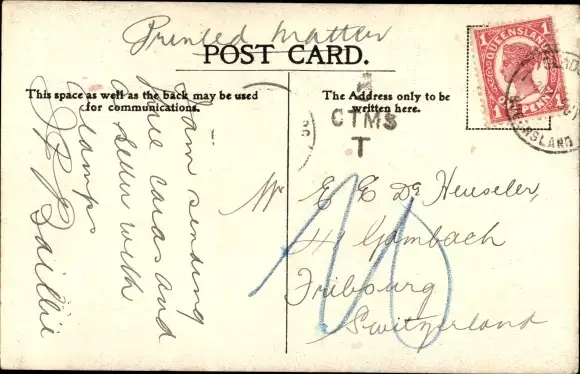 Printed Matter
POST CARD.
This space as well as the back may be used
for communications.
The Address only to be
written here.
1 QUEENSLAND 1
ONE PENNY
QUEENSLAND
CTMS
T
10
I am sending
five cards and
a letter with
stamps
J P Baillie
Mr E E De Heuseler,
41 Gambach
Fribourg
Switzerland